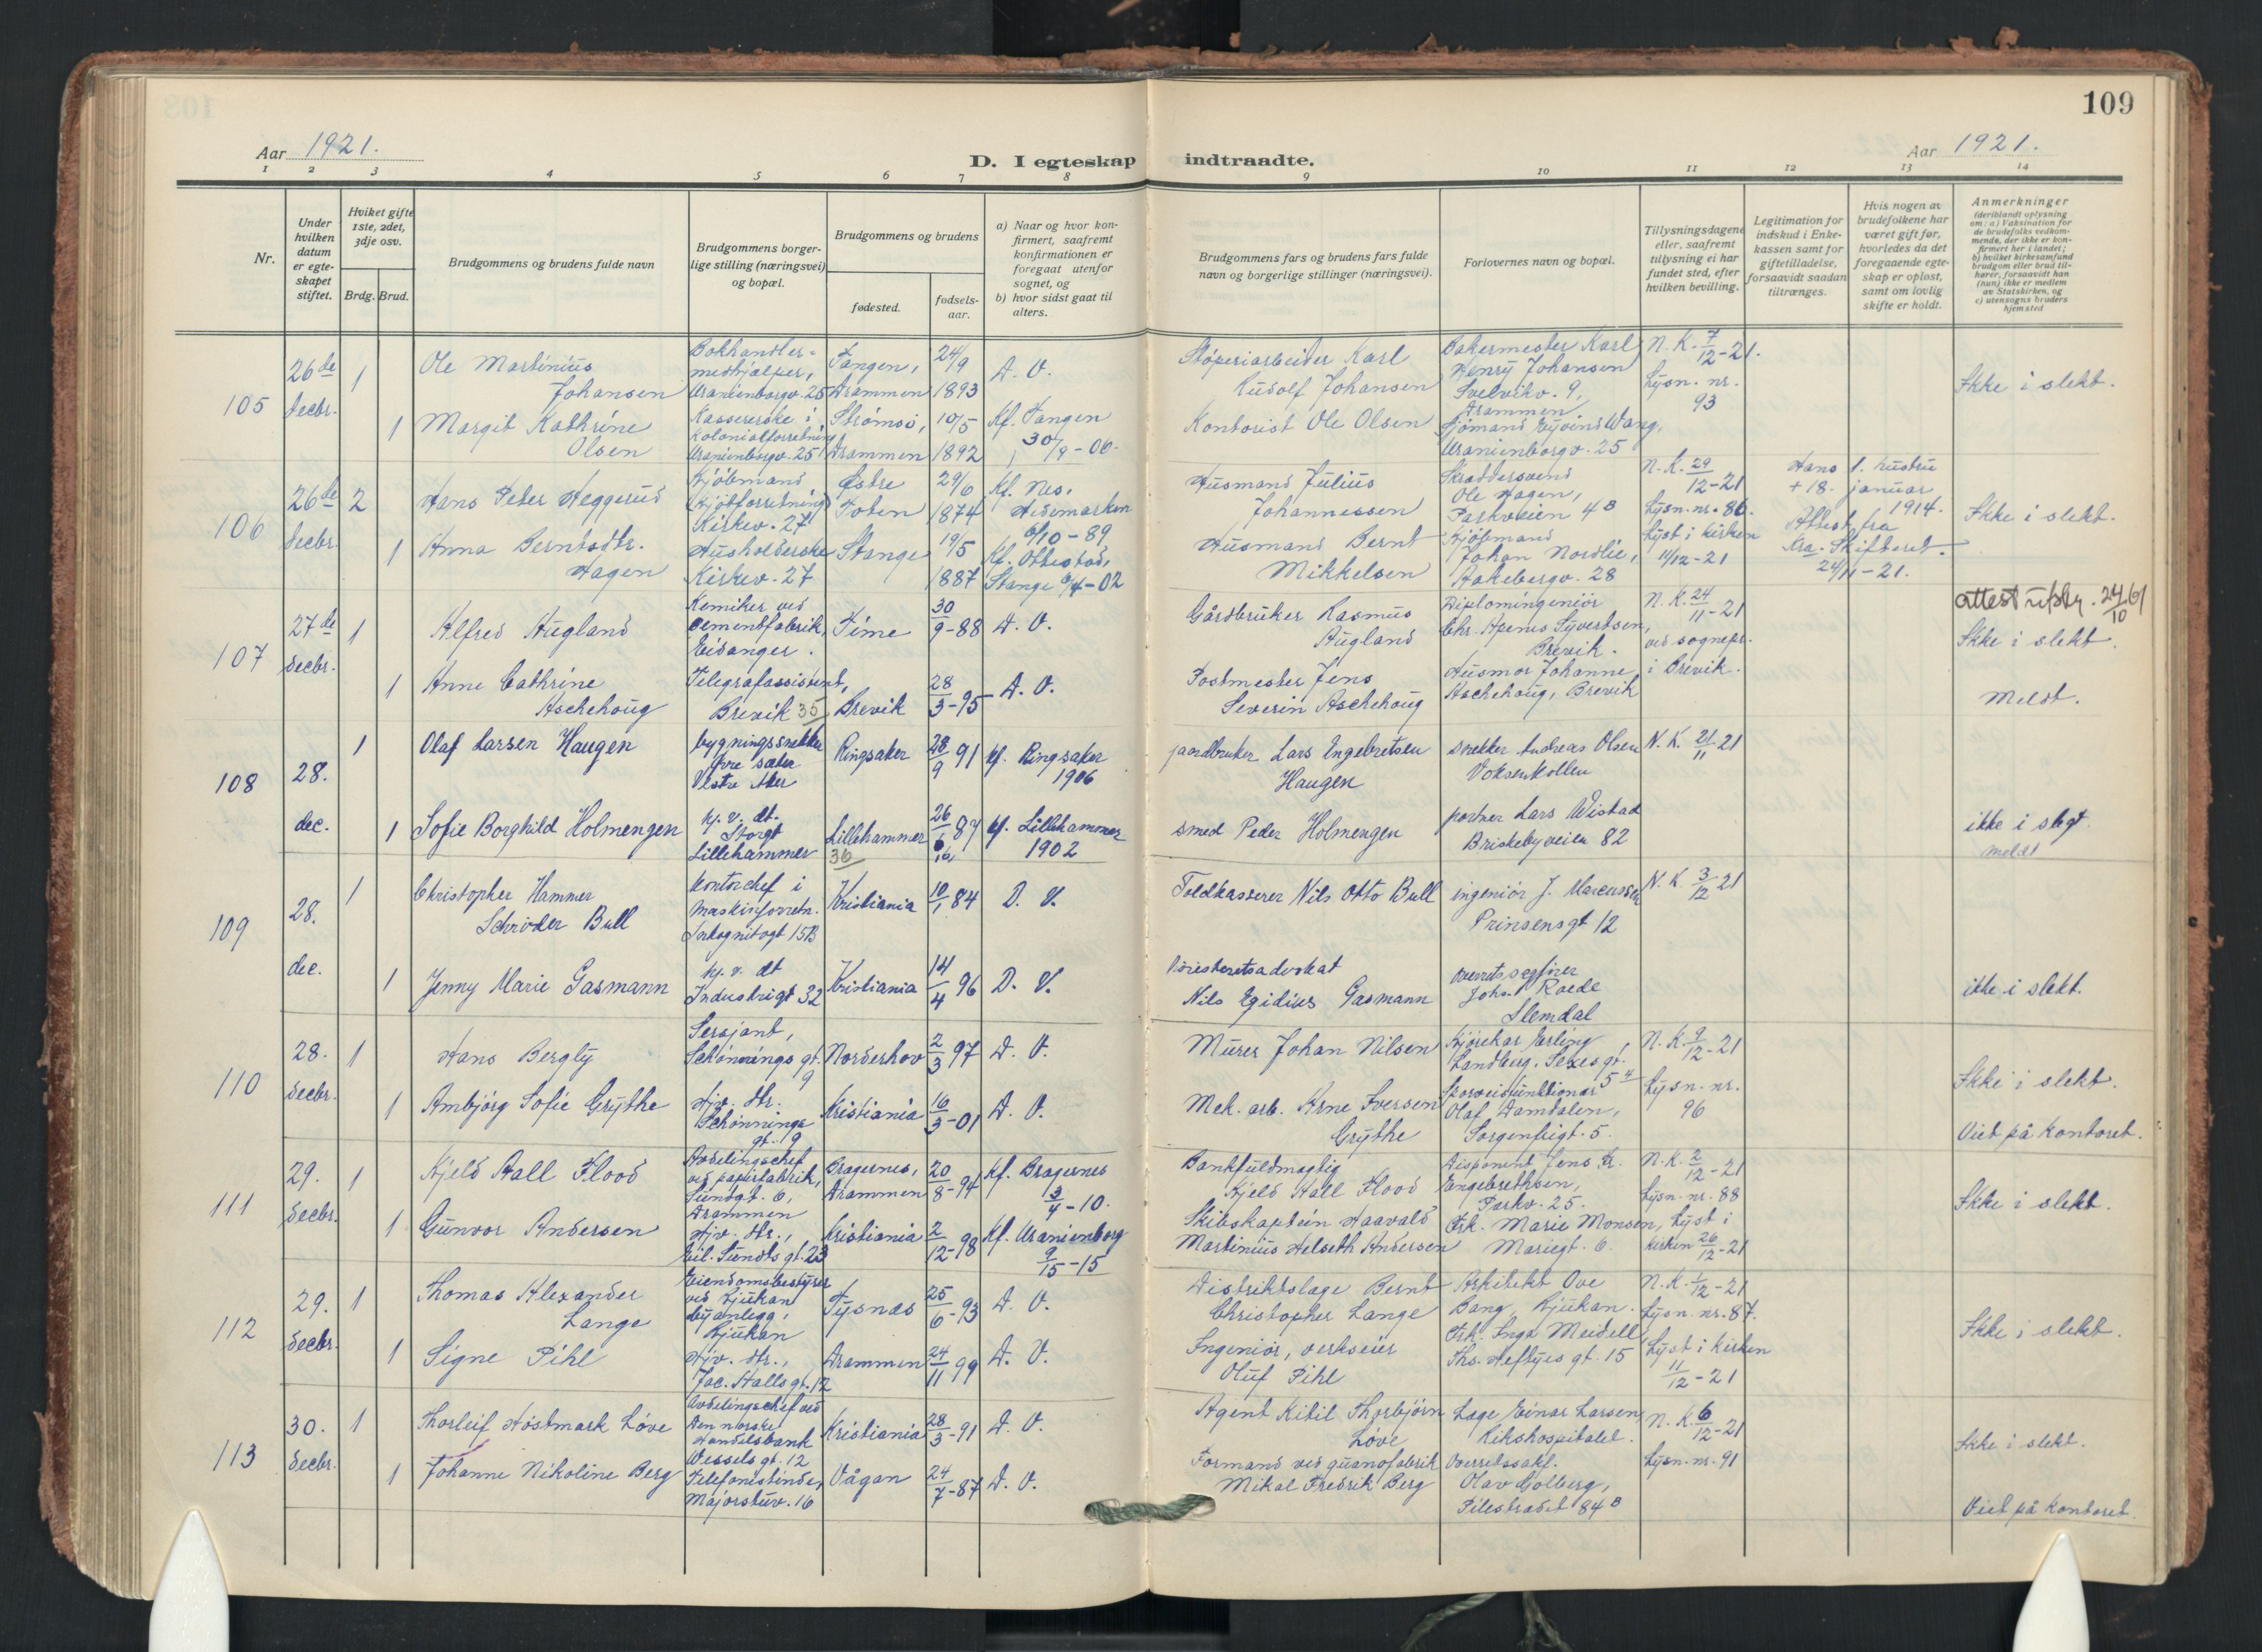 109
Aar 1921.
D. I egteskap indtraadte.
Aar 1921.
1 2 3 4 5 6 7 8 9 10 11 12 13 14
Nr.
Under
hvilken
datum
er egte-
skapet
stiftet.
Hviket gifte
1ste, 2det,
3dje osv.
Brdg. Brud.
Brudgommens og brudens fulde navn
Brudgommens borger-
lige stilling (næringsvei)
og bopæl.
Brudgommens og brudens
fødested.
fødsels-
aar.
a) Naar og hvor kon-
firmert, saafremt
konfirmationen er
foregaat utenfor
sognet, og
b) hvor sidst gaat til
alters.
Brudgommens fars og brudens fars fulde
navn og borgerlige stillinger (næringsvei).
Forlovernes navn og bopæl.
Tillysningsdagene
eller, saafremt
tillysning ei har
fundet sted, efter
hvilken bevilling.
Legitimation for
indskud i Enke-
kassen samt for
giftetilladelse,
forsaavidt saadan
tiltrænges.
Hvis nogen av
brudefolkene har
været gift før,
hvorledes da det
foregaaende egte-
skap er opløst,
samt om lovlig
skifte er holdt.
Anmerkninger
(deriblandt oplysning
om: a) Vaksination for
de brudefolks vedkom-
mende, der ikke er kon-
firmert her i landet;
b) hvilket kirkesamfund
brudgom eller brud til-
hører, forsaavidt han
(hun) ikke er medlem
av Statskirken, og
c) utensogns bruders
hjemsted
105
26de
decbr.
1
Ole Martinius
Johansen
Bokhandler-
medhjælper,
Uranienborgv. 25
Tangen,
Drammen
24/9
1893
D. V.
Støperiarbeider Karl
Rudolf Johansen
Bakermester Karl
Henry Johansen
Svelvikv. 9,
Drammen.
N. K. 7/12-21.
Lysn. nr.
93
Ikke i slekt.
1
Margit Kathrine
Olsen
Kassererske i
kolonialforretning
Uranienborgv. 25
Strømsø,
Drammen
10/5
1892
Kf. Tangen
30/9-06.
Kontorist Ole Olsen
Sjømand Eyvind Wang,
Uranienborgv. 25
106
26de
decbr.
2
Hans Peter Heggerud
Kjøbmand
(Kjøtforretning)
Kirkev. 27
Østre
Toten
29/6
1874
Kf. Nes,
Hedemarken
6/10-89
Husmand Julius
Johannessen
Skræddersvend
Ole Hagen,
Parkveien 4B
N. K. 29/12-21
Lysn. nr. 86.
Lyst i kirken
11/12-21
Hans 1. hustru
+ 18. januar
1914.
Attest fra
Kra. Skifteret.
24/11-21.
Ikke i slekt.
1
Anna Berntsdtr.
Hagen
Husholderske
Kirkev. 27
Stange
19/5
1887
Kf. Ottestad,
Stange 6/4-02
Husmand Bernt
Mikkelsen
Kjøbmand
Johan Nordlie,
Aakebergv. 28
107
27de
decbr.
1
Alfred Augland
Kemiker ved
cementfabrik,
Eidanger.
Time
30/9-88
D. V.
Gårdbruker Rasmus
Augland
Diplomingeniør
Chr. Apenes Syvertsen,
Brevik.
N. K. 24/11-21
ved sognepr.
i Brevik.
attest utskr. 24/10 61
Ikke i slekt.
1
Anne Cathrine
Aschehoug
Telegrafassistent,
Brevik 35
Brevik
28/3-95
D. V.
Postmester Jens
Severin Aschehoug
Husmor Johanne
Aschehoug, Brevik
Meldt.
108
28.
dec.
1
Olaf Larsen Haugen
bygningssnekker
Øvre sæter
Vestre Aker
Ringsaker
28/9 91
kf. Ringsaker
1906
gaardbruker Lars Engebretsen
Haugen
snekker Andreas Olsen
Voksenkollen
N. K. 21/11 21
1
Sofie Borghild Holmengen
hj. v. dt.
Storgt
Lillehammer
Lillehammer
36
26/6 87
kf. Lillehammer
1902
smed Peder Holmengen
portner Lars Wistad
Briskebyveien 82
ikke i slegt.
meldt
109
28.
dec.
1
Christopher Hammer
Schrøder Bull
kontorchef i
maskinforretn.
Inkognitogt 15B
Kristiania
10/1 84
D. V.
Toldkasserer Nils Otto Bull
ingeniør J. Marcussen
Prinsensgt 12
N. K. 3/12 21
1
Jenny Marie Gasmann
hj. v. dt
Industrigt 32
Kristiania
14/4 96
D. V.
Høiesteretsadvokat
Nils Egidius Gasmann
overretssagfører
Johs. Roede
Slemdal
ikke i slekt.
110
28.
decbr.
1
Hans Bergly
Sersjant,
Schønnings gt.
9
Norderhov
2/3 97
D. V.
Murer Johan Nilsen
Kjørekar Erling
Landberg, Sexesgt.
5
N. K. 9/12-21
Lysn. nr.
96
Ikke i slekt.
1
Ambjørg Sofie Grythe
Hjv. dtr.
Schønnings
gt. 9
Kristiania
16/3-01
D. V.
Mek. arb. Arne Iversen
Grythe
Sporveisfunktionær
Olaf Damdalen,
Sorgenfrigt. 5.
Viet på kontoret.
111
29.
decbr.
1
Kjeld Hall Flood
Avdelingschef
ved papirfabrik,
Sundgt. 6,
Drammen
Bragernes,
Drammen
20/8-94
Kf. Bragernes
3/4-10.
Bankfuldmægtig
Kjeld Hall Flood
Disponent Jens Kr.
Engebrethsen,
Parkv. 25.
N. K. 2/12-21
Lysn. nr. 88
Ikke i slekt.
1
Gunvor Andersen
Hjv. dtr.,
Eil. Sundts gt. 23
Kristiania
2/12-98
Kf. Uranienborg
9/15-15
Skibskaptein Haavald
Martinius Helseth Andersen
Frk. Marie Monsen,
Mariegt. 6.
Lyst i
kirken 26/12-21
112
29.
decbr.
1
Thomas Alexander
Lange
Eiendomsbestyrer
ved Rjukan
byanlegg,
Rjukan
Tysnæs
25/6-93
D. V.
Distriktslæge Bernt
Christopher Lange
Arkitekt Ove
Bang, Rjukan.
N. K. 1/12-21
Lysn. nr. 87.
Ikke i slekt.
1
Signe Pihl
Hjv. dtr.,
Jac. Halls gt. 12
Drammen
24/11 99
D. V.
Ingeniør, verkseier
Oluf Pihl
Frk. Inga Meidell,
Ths. Heftyes gt. 15
Lyst i kirken
11/12-21
113
30.
decbr.
1
Thorleif Høstmark Løve
Avdelingschef ved
Den norske
Handelsbank
Wessels gt. 12
Kristiania
28/3-91
D. V.
Agent Kitil Thorbjørn
Løve
Læge Einar Larsen,
Rikshospitalet.
N. K. 6/12-21
Lysn. nr. 91
Ikke i slekt.
1
Johanne Nikoline Berg
Telefonistinde,
Majorstuv. 16
Vågan
24/7-87
D. V.
Formand ved guanofabrik
Mikal Fredrik Berg
Overretssakf.
Olav Gjolberg,
Pilestrædet 84B
Viet på kontoret.